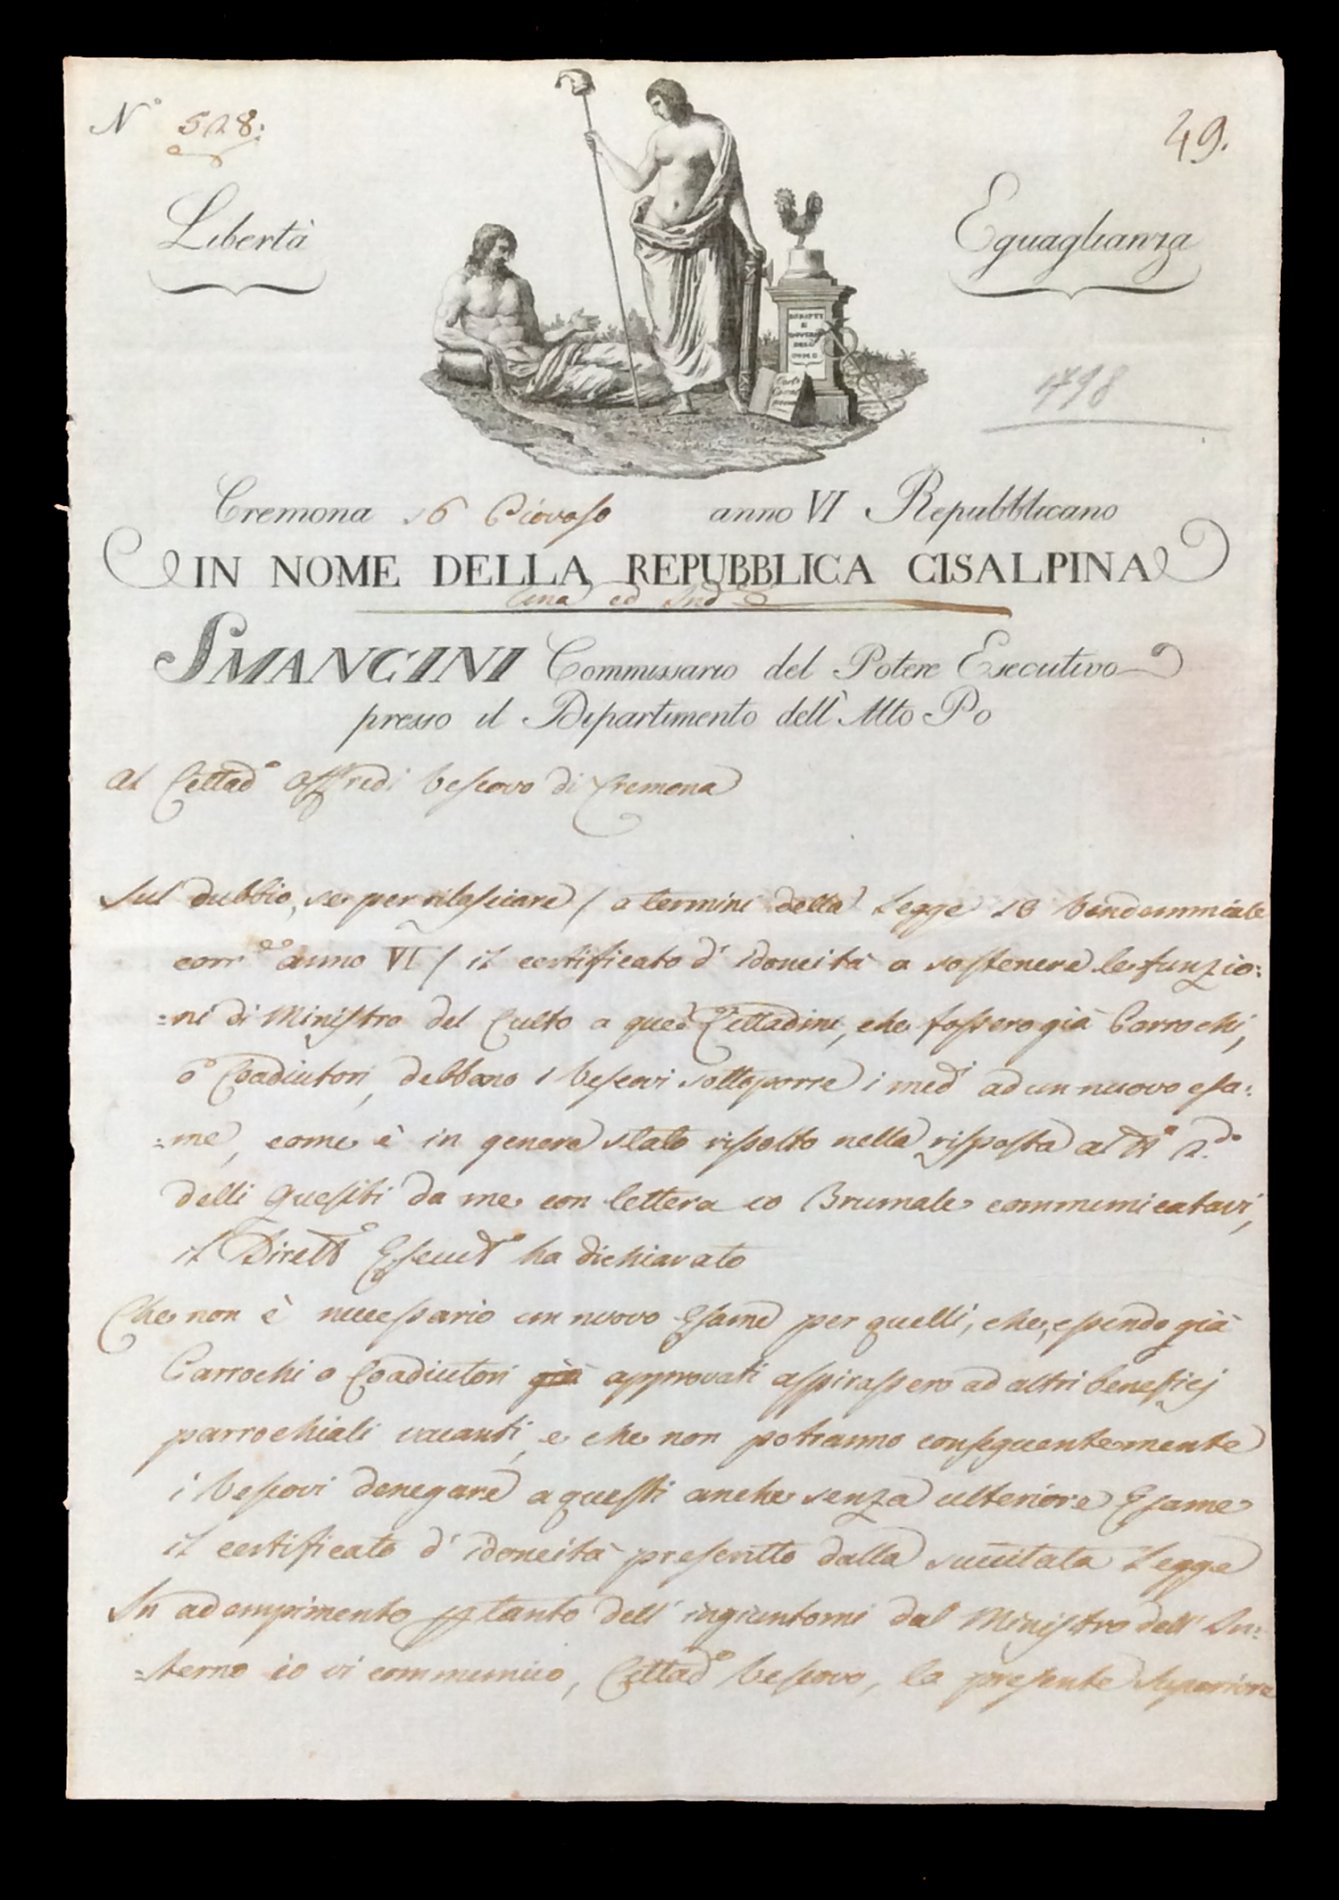 N.° 528:
49.
Libertà
Eguaglianza
DIRITTI
E
DOVERI
DELL'
UOMO
1798
Cremona 16 Piovoso anno VI Repubblicano
IN NOME DELLA REPUBBLICA CISALPINA
Una ed Ind
SMANCINI Commissario del Potere Esecutivo
presso il Dipartimento dell'Alto Po
Al Cittad.° Offredi Vescovo di Cremona
Sul dubbio, se per rilasciare / a termini della Legge 18 Vendemmiale
corr. anno VI / il certificato d'idoneità a sostenere le funzio:
:ni di Ministro del Culto a que' Cittadini, che fossero già Parrochi,
o Coadiutori, debbano i Vescovi sottoporre i med.i ad un nuovo esa:
:me, come è in genere stato risolto nella risposta al N.° 2.do
delli Quesiti da me con lettera 10 Brumale communicatavi,
il Dirett.° Esecut.° ha dichiarato
Che non è necessario un nuovo Esame per quelli, che, essendo già
Parrochi o Coadiutori già approvati aspirassero ad altri beneficj
parrochiali vacanti, e che non potranno conseguentemente
i Vescovi denegare a questi anche senza ulteriore Esame
il certificato d'idoneità prescritto dalla succitata Legge
In adempimento ptanto dell'ingiuntomi dal Ministro dell'In:
:terno io vi communico, Cittad.° Vescovo, la presente Superiore